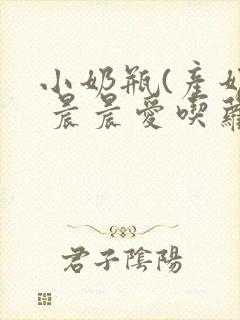 小奶瓶(產奶
晨晨愛喫蘿
君子陰陽